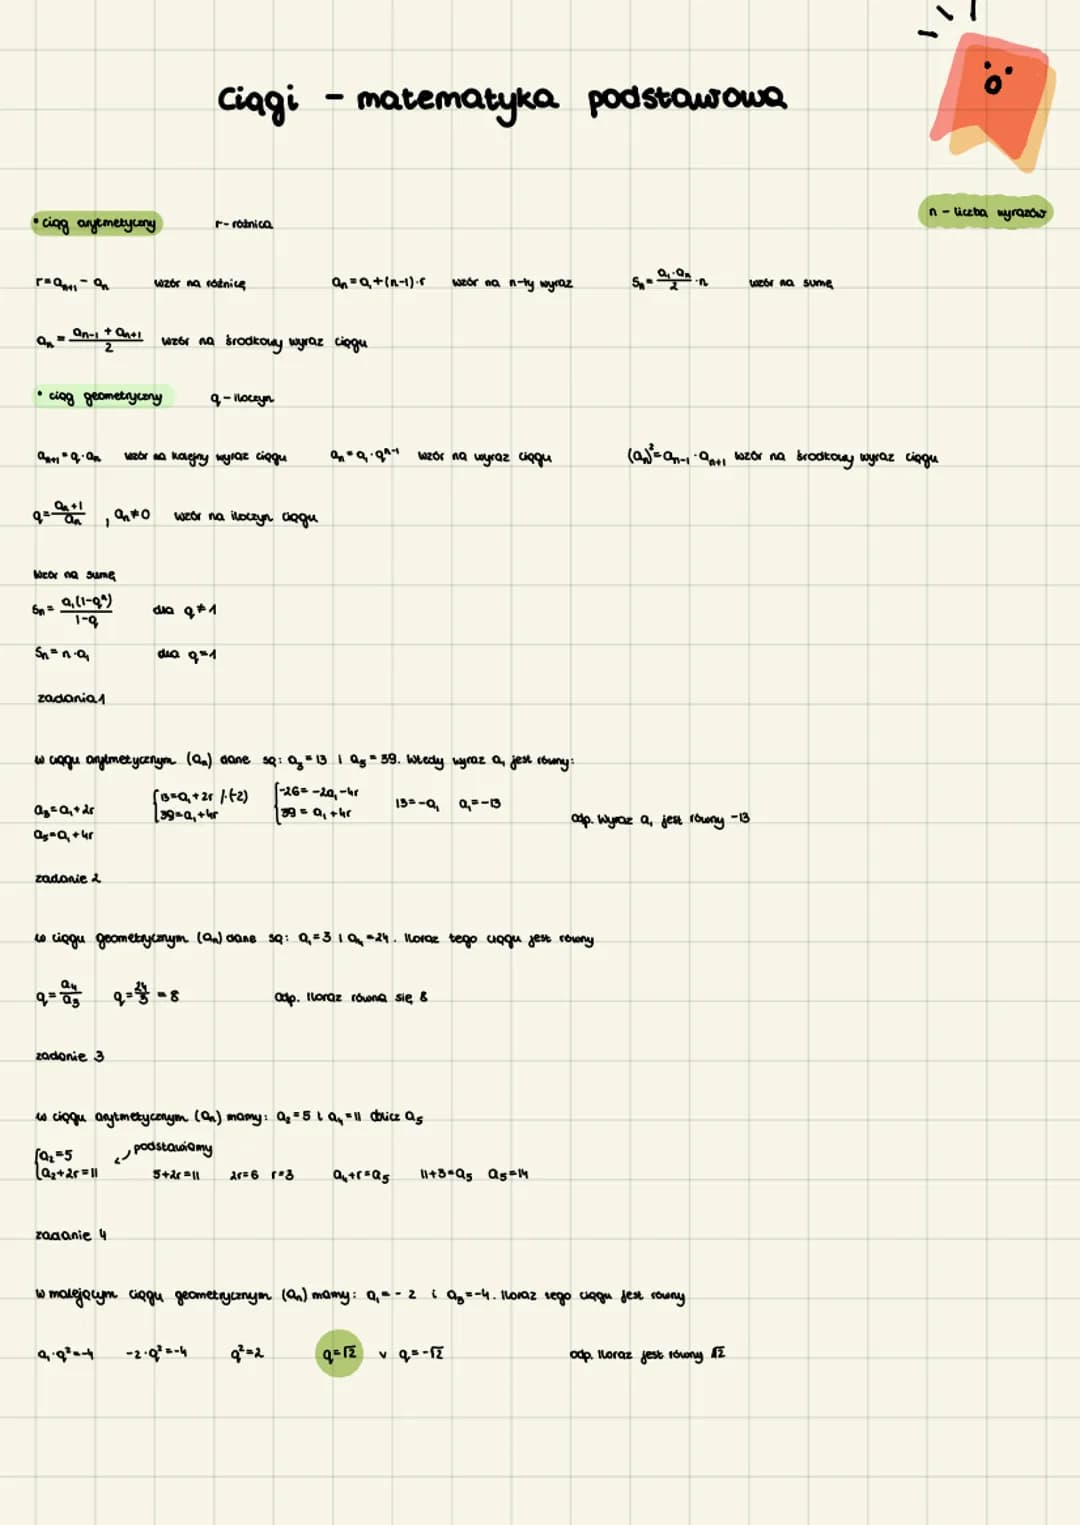 Ciągi - matematyka podstawowa
n - liczba wyrazów
• ciąg arytmetyczny r - różnica
r = aₙ₊₁ - aₙ wzór na różnicę aₙ = a₁ + (n-1)·r wzór na n-ty wyraz Sₙ = (a₁·aₙ)/2 ·n wzór na sumę
aₙ = (aₙ₋₁ + aₙ₊₁)/2 wzór na środkowy wyraz ciągu
• ciąg geometryczny q - iloczyn
aₙ₊₁ = q·aₙ wzór na kolejny wyraz ciągu aₙ = a₁·qⁿ⁻¹ wzór na wyraz ciągu (aₙ)² = aₙ₋₁·aₙ₊₁ wzór na środkowy wyraz ciągu
q = (aₙ+1)/aₙ , aₙ ≠ 0 wzór na iloczyn ciągu
wzór na sumę
Sₙ = a₁(1-qⁿ)/(1-q) dla q ≠ 1
Sₙ = n·a₁ dla q = 1
zadania 1
w ciągu arytmetycznym (aₙ) dane są: a₃ = 13 i a₅ = 39. Wtedy wyraz a₁ jest równy:
a₃ = a₁ + 2r {13 = a₁ + 2r /·(-2) {-26 = -2a₁ - 4r 13 = -a₁ a₁ = -13
a₅ = a₁ + 4r 39 = a₁ + 4r 39 = a₁ + 4r odp. Wyraz a₁ jest równy -13
zadanie 2
w ciągu geometrycznym (aₙ) dane są: a₁ = 3 i a₄ = 24. Iloraz tego ciągu jest równy
q = a₄/a₃ q = 24/3 = 8 odp. Iloraz równa się 8
zadanie 3
w ciągu arytmetycznym (aₙ) mamy: a₂ = 5 i a₄ = 11 oblicz a₅
{a₂ = 5 podstawiamy
a₂ + 2r = 11 5 + 2r = 11 2r = 6 r = 3 a₄ + r = a₅ 11 + 3 = a₅ a₅ = 14
zadanie 4
w malejącym ciągu geometrycznym (aₙ) mamy: a₁ = -2 i a₃ = -4. Iloraz tego ciągu jest równy
a₁·q² = -4 -2·q² = -4 q² = 2 q = √2 v q = -√2 odp. Iloraz jest równy √2